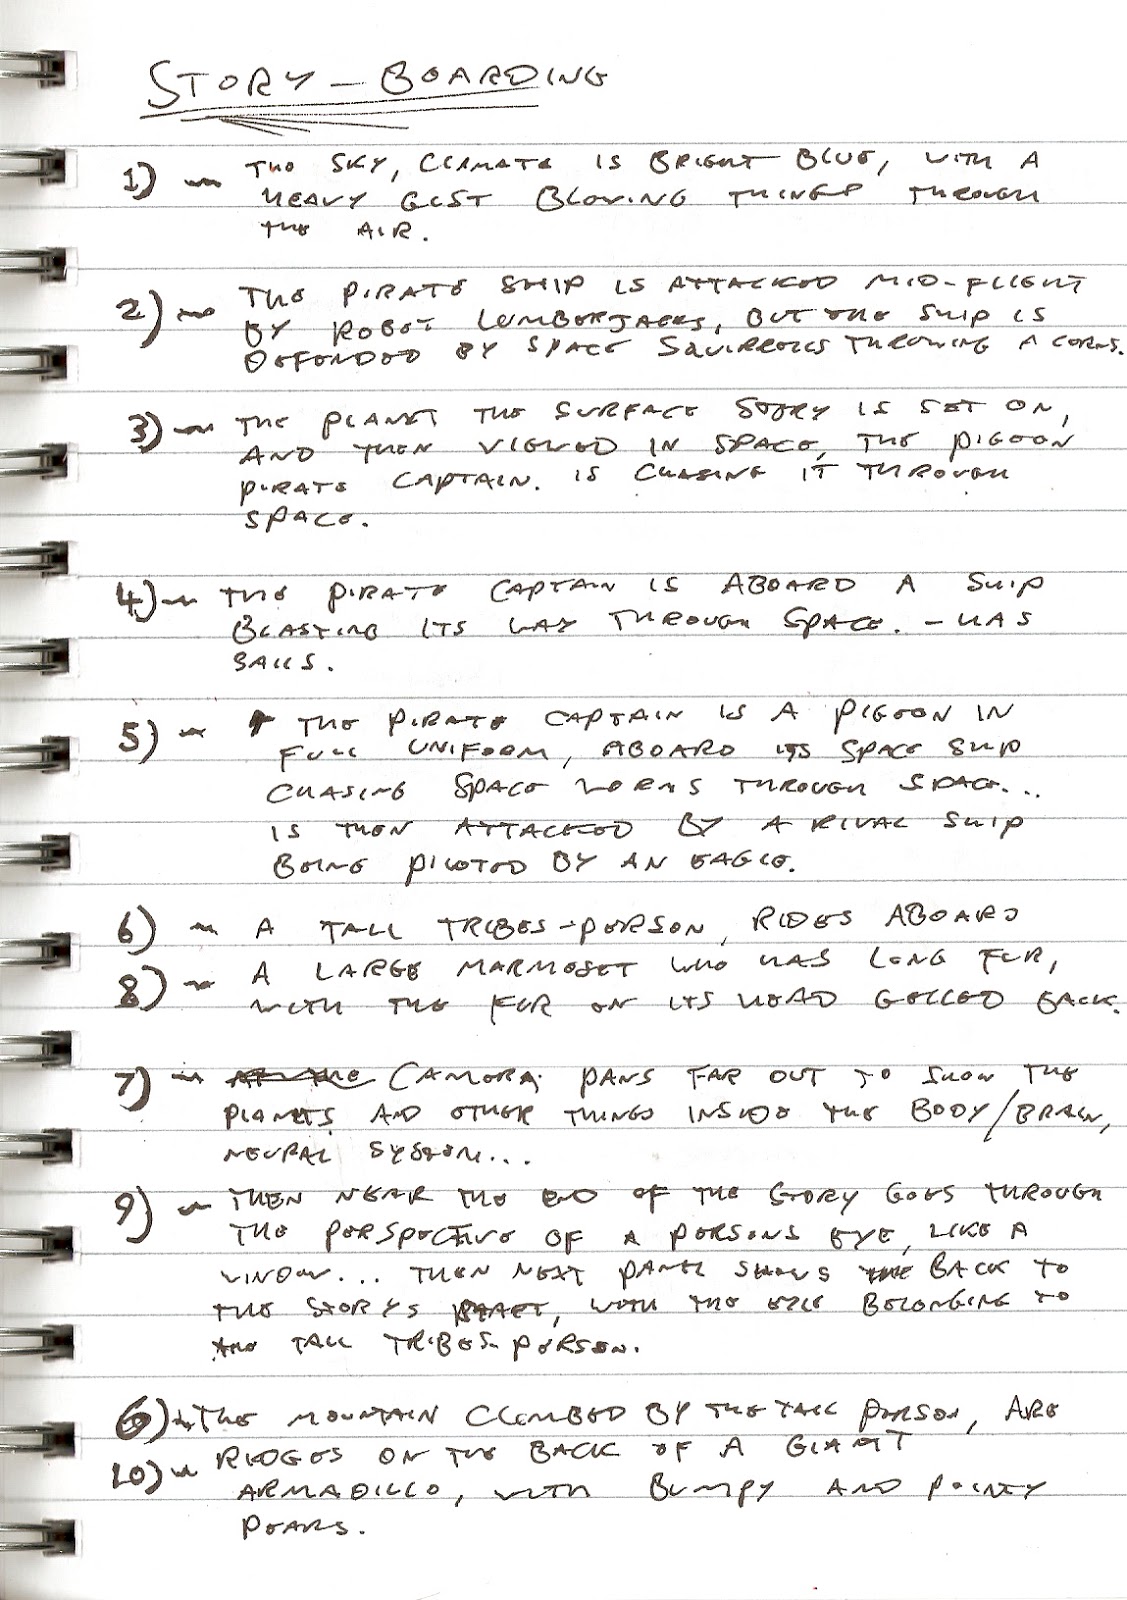 STORY - BOARDING
1) ~ THE SKY, CLIMATE IS BRIGHT BLUE, WITH A
HEAVY GUST BLOWING THINGS THROUGH
THE AIR.
2) ~ THE PIRATE SHIP IS ATTACKED MID-FLIGHT
BY ROBOT LUMBERJACKS, BUT THE SHIP IS
DEFENDED BY SPACE SQUIRRELLS THROWING ACORNS.
3) ~ THE PLANET THE SURFACE STORY IS SET ON,
AND THEN VIEWED IN SPACE, THE PIGEON
PIRATE CAPTAIN. IS CHASING IT THROUGH
SPACE.
4) ~ THE PIRATE CAPTAIN IS ABOARD A SHIP
BLASTING ITS WAY THROUGH SPACE. - HAS
SAILS.
5) ~ THE PIRATE CAPTAIN IS A PIGEON IN
FULL UNIFORM, ABOARD ITS SPACE SHIP
CHASING SPACE WORMS THROUGH SPACE...
IS THEN ATTACKED BY A RIVAL SHIP
BEING PILOTED BY AN EAGLE.
6) ~ A TALL TRIBES-PERSON, RIDES ABOARD
8) ~ A LARGE MARMOSET WHO HAS LONG FUR,
WITH THE FUR ON ITS HEAD GELLED BACK.
7) ~ CAMERA PANS FAR OUT TO SHOW THE
PLANETS AND OTHER THINGS INSIDE THE BODY/BRAIN,
NEURAL SYSTEM...
9) ~ THEN NEAR THE END OF THE STORY GOES THROUGH
THE PERSPECTIVE OF A PERSONS EYE, LIKE A
WINDOW... THEN NEXT PANEL SHOWS THE BACK TO
THE STORYS, WITH THE EYE BELONGING TO
THE TALL TRIBES-PERSON.
6) ~ THE MOUNTAIN CLIMBED BY THE TALL PERSON, ARE
10) ~ RIDGES ON THE BACK OF A GIANT
ARMADILLO, WITH BUMPY AND POINTY
PEAKS.